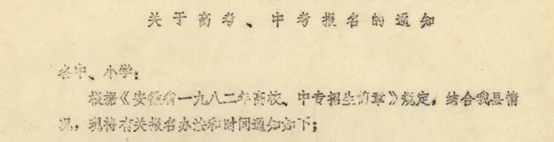 关于高考、中考报名的通知
各中、小学：
根据《安徽省一九八二年高校、中专招生简章》规定，结合我县情
况，现将有关报名办法和时间通知如下；